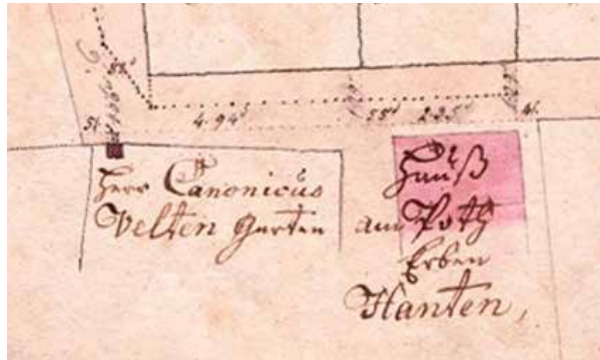 58'
51.
4.94'
55'
2.25'
41.
Herr Canonicus
Velten Garten
Hauß
am Poth
Erben
Hanten,